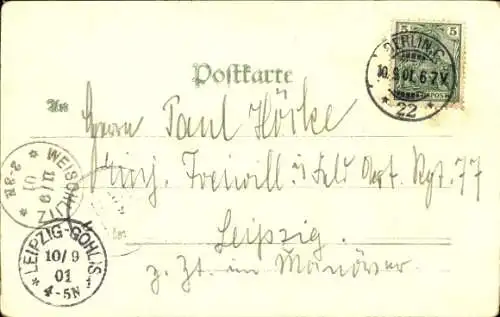 5 5
BERLIN.C.
10.9.01.6-7V.
* 22 *
Postkarte
An
Herrn Paul Höcke
Einj. Freiwill i. Feld Art. Rgt. 77
Leipzig.
z. Zt. im Manöver
WEISCHLITZ
11/9
01
2-3N
* LEIPZIG-GOHLIS *
10/9
01
4-5N